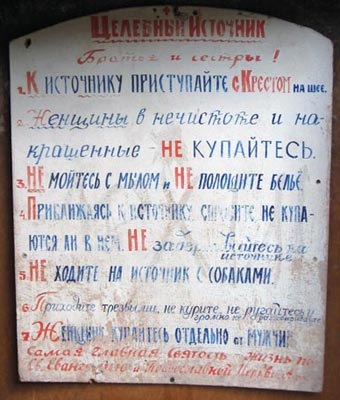 Целебный Источник
Братья и сестры!
1. К источнику приступайте с Крестом на шее.
2. Женщины в нечистоте и на-
крашенные - НЕ купайтесь.
3. НЕ мойтесь с мылом и НЕ полощите бельё.
4. Приближаясь к источнику, спросите, не купа-
ются ли в нём. НЕ задерживайтесь на
источнике
5. НЕ ходите на источник с собаками.
6. Приходите трезвыми, не курите, не ругайтесь и
громко не
7. Женщины купайтесь отдельно от мужчин
Самая главная святость жизнь по
Св. Евангелию и Православной Церкви